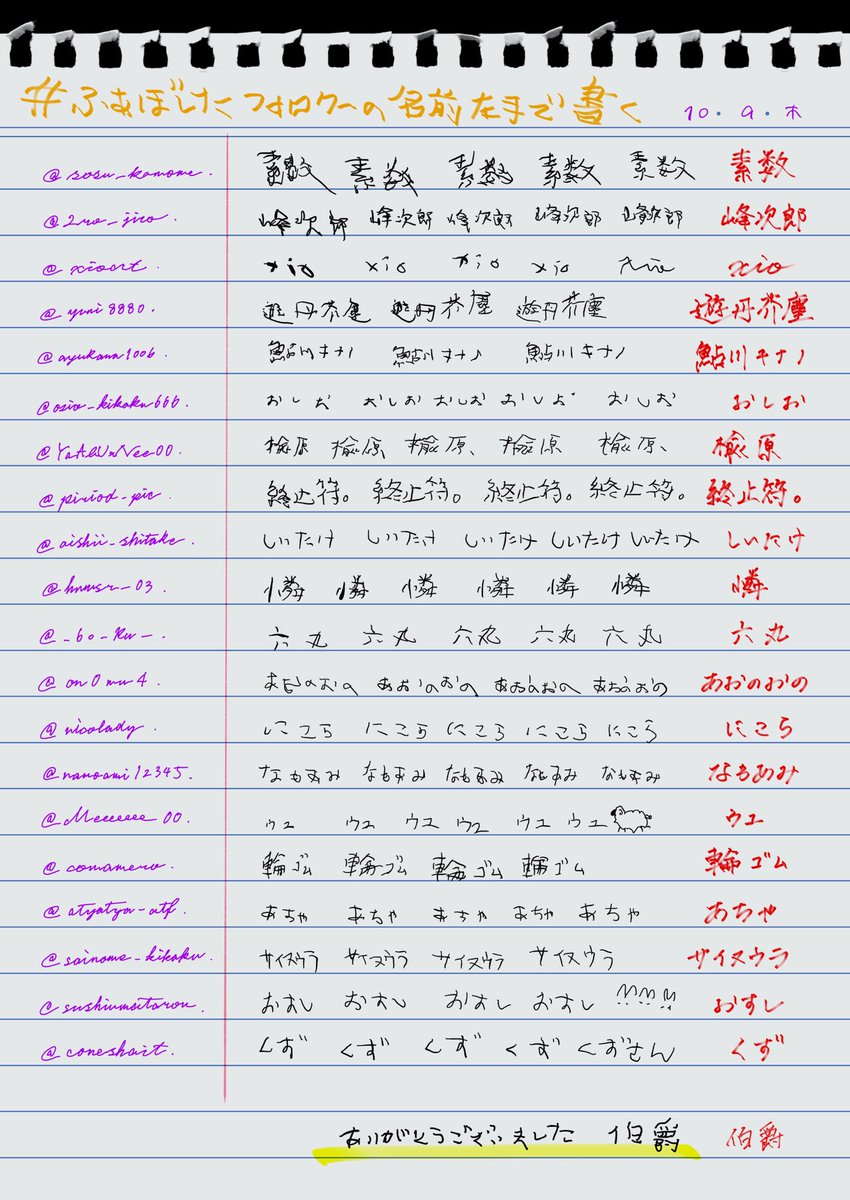 #ふぁぼしたフォロワーの名前左手で書く 10.9.木
@sosu_kamome. 素数 素数 素数 素数 素数 素数
@2ro_jiro. 峰次郎 峰次郎 峰次郎 峰次郎 峰次郎 峰次郎
@xioart. xio xio xio xio xio xio
@yuni8880. 遊丹芥塵 遊丹芥塵 遊丹芥塵 遊丹芥塵
@ayukawa1006. 鮎川キナノ 鮎川キナノ 鮎川キナノ 鮎川キナノ
@osio_kikaku666. おしお おしお おしお おしお おしお おしお
@YaAhUnNee00. 楡原 楡原 楡原、 楡原 楡原、 楡原
@piriod_pic. 終止符。 終止符。 終止符。 終止符。 終止符。
@aishii_shitake. しいたけ しいたけ しいたけ しいたけ しいたけ しいたけ
@hnmsr_03. 憐 憐 憐 憐 憐 憐 憐
@_60_Ru_. 六丸 六丸 六丸 六丸 六丸 六丸
@on0mu4. あおのおの あおのおの あおのおの あおのおの あおのおの
@nicolady. にこら にこら にこら にこら にこら にこら
@namoami12345. なもあみ なもあみ なもあみ なもあみ なもあみ なもあみ
@Meeeeeee00. ウユ ウユ ウユ ウユ ウユ ウユ ウユ
@comamero. 輪ゴム 輪ゴム 輪ゴム 輪ゴム 輪ゴム
@atyatya_atf. あちゃ あちゃ あちゃ あちゃ あちゃ あちゃ
@sainome_kikaku. サイヌウラ サイヌウラ サイヌウラ サイヌウラ サイヌウラ
@sushiumaitarou. おすし おすし おすし おすし おすし
@coneshait. くず くず くず くず くずさん くず
ありがとうございました 伯爵 伯爵